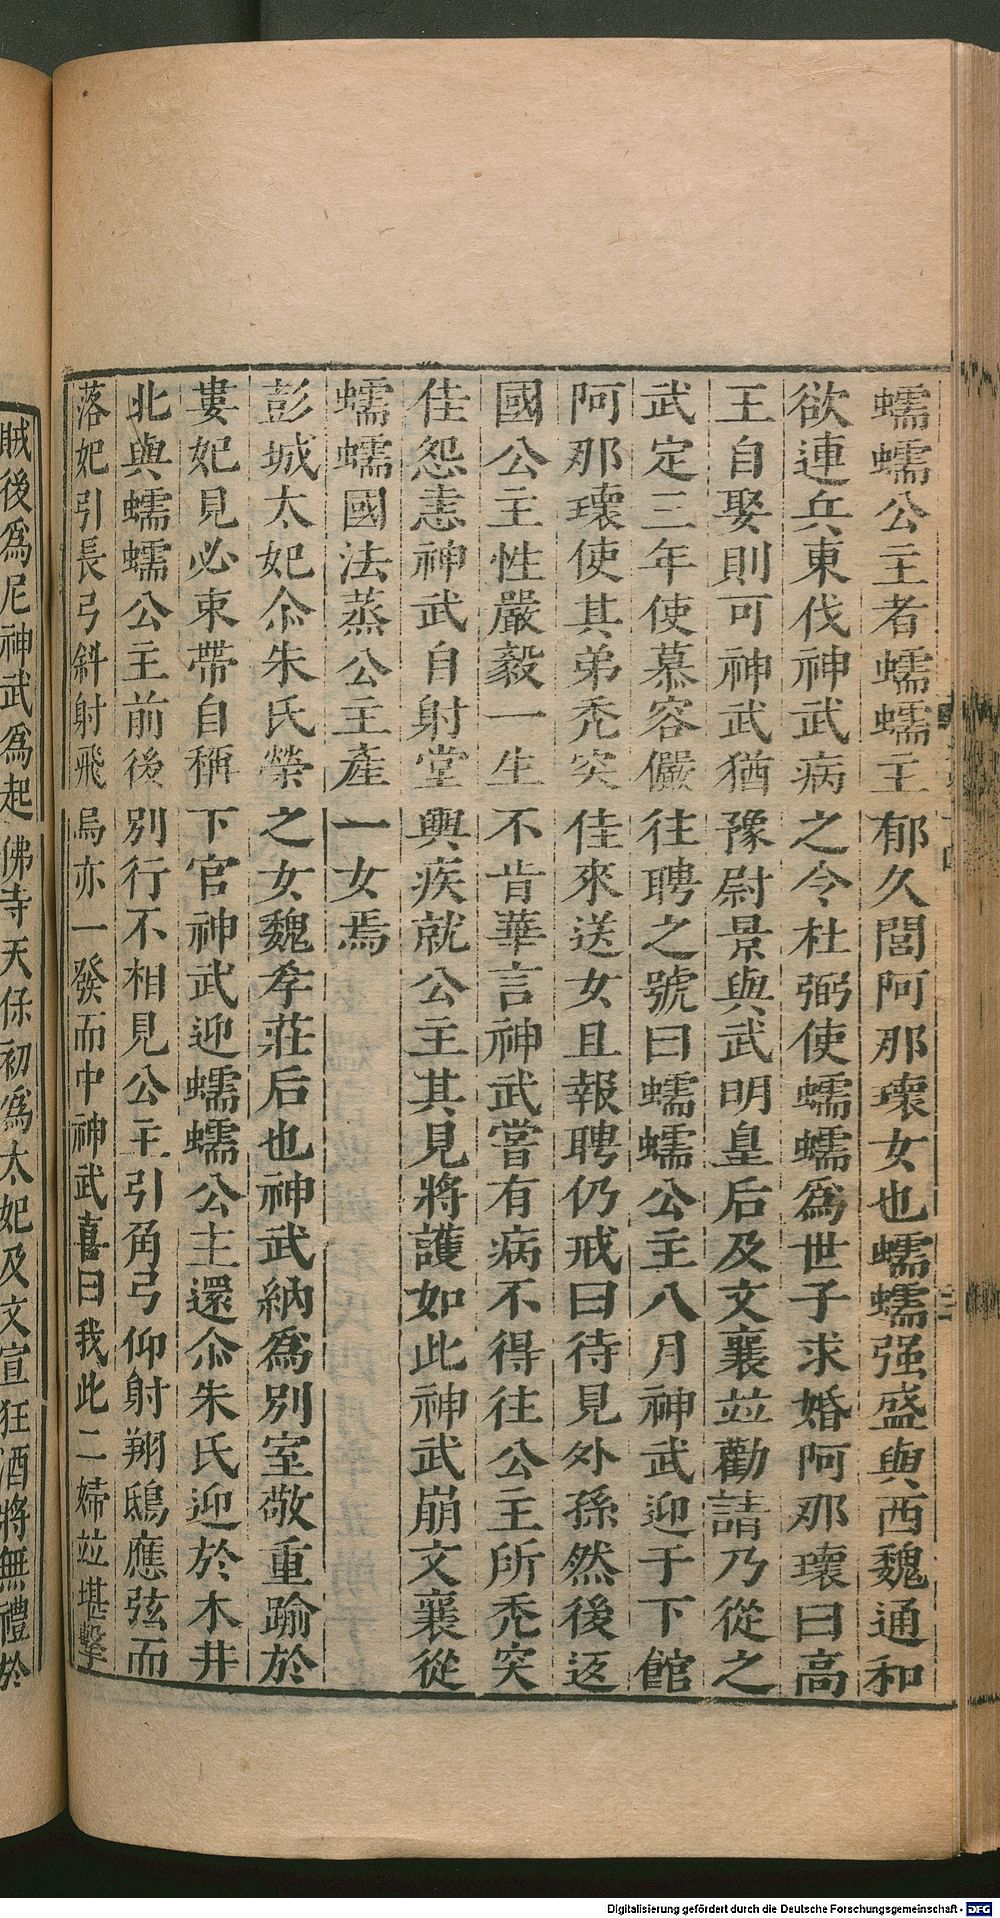 蠕蠕公主者蠕蠕主郁久閭阿那瓌女也蠕蠕强盛與西魏通和
欲連兵東伐神武病之令杜弼使蠕蠕爲世子求婚阿那瓌曰高
王自娶則可神武猶豫尉景與武明皇后及文襄並勸請乃從之
武定三年使慕容儼往聘之號曰蠕蠕公主八月神武迎于下館
阿那瓌使其弟禿突佳來送女且報聘仍戒曰待見外孫然後返
國公主性嚴毅一生不肯華言神武嘗有病不得往公主所禿突
佳怨恚神武自射堂輿疾就公主其見將護如此神武崩文襄從
蠕蠕國法蒸公主產一女焉
彭城太妃尒朱氏榮之女魏孝莊后也神武納爲別室敬重踰於
婁妃見必束帶自稱下官神武迎蠕蠕公主還尒朱氏迎於木井
北與蠕蠕公主前後別行不相見公主引角弓仰射翔鴟應弦而
落妃引長弓斜射飛烏亦一發而中神武喜曰我此二婦並堪擊
賊後爲尼神武爲起佛寺天保初爲太妃及文宣狂酒將無禮於
Digitalisierung gefördert durch die Deutsche Forschungsgemeinschaft - DFG